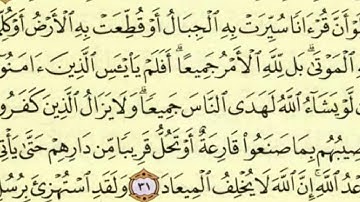 وَأَنَّ قُرْءَانًا سُيِّرَتْ بِهِ ٱلْجِبَالُ أَوْ قُطِّعَتْ بِهِ ٱلْأَرْضُ أَوْ كُلِّ
ٱلْمَوْتَىٰ ۗ بَل لِّلَّهِ ٱلْأَمْرُ جَمِيعًا ۗ أَفَلَمْ يَا۟يْـَٔسِ ٱلَّذِينَ ءَامَنُو
لَّوْ يَشَآءُ ٱللَّهُ لَهَدَى ٱلنَّاسَ جَمِيعًا ۗ وَلَا يَزَالُ ٱلَّذِينَ كَفَرُو
صِيبُهُم بِمَا صَنَعُوا۟ قَارِعَةٌ أَوْ تَحُلُّ قَرِيبًا مِّن دَارِهِمْ حَتَّىٰ يَأْتِ
عْدُ ٱللَّهِ ۚ إِنَّ ٱللَّهَ لَا يُخْلِفُ ٱلْمِيعَادَ ٣١ وَلَقَدِ ٱسْتُهْزِئَ بِرُسُلٍ